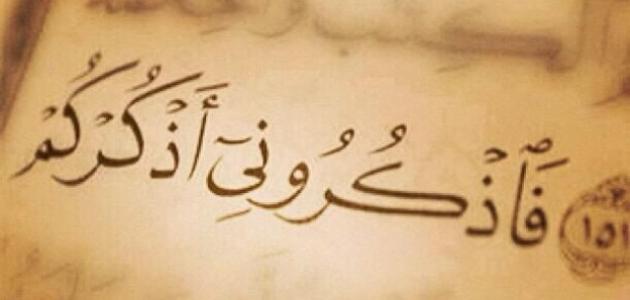 ١٥١ فَٱذْكُرُونِىٓ أَذْكُرْكُمْ